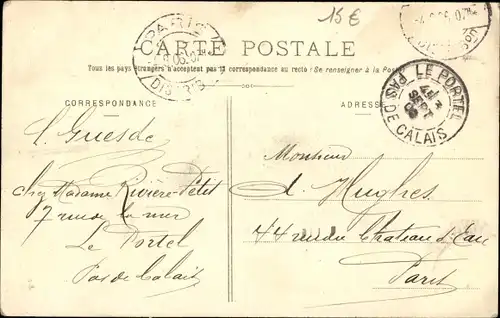 15€
PARIS
DISTRIB
CARTE POSTALE
Tous les pays étrangers n'acceptent pas la correspondance au recto (Se renseigner à la Poste)
LE PORTEL
SEPT
PAS DE CALAIS
CORRESPONDANCE
ADRESSE
L. Guesde
chez Madame Rivière-Petit
7 rue de la mer
Le Portel
Pas de Calais
Monsieur
A. Hughes
44 rue du Chateau d'Eau
Paris